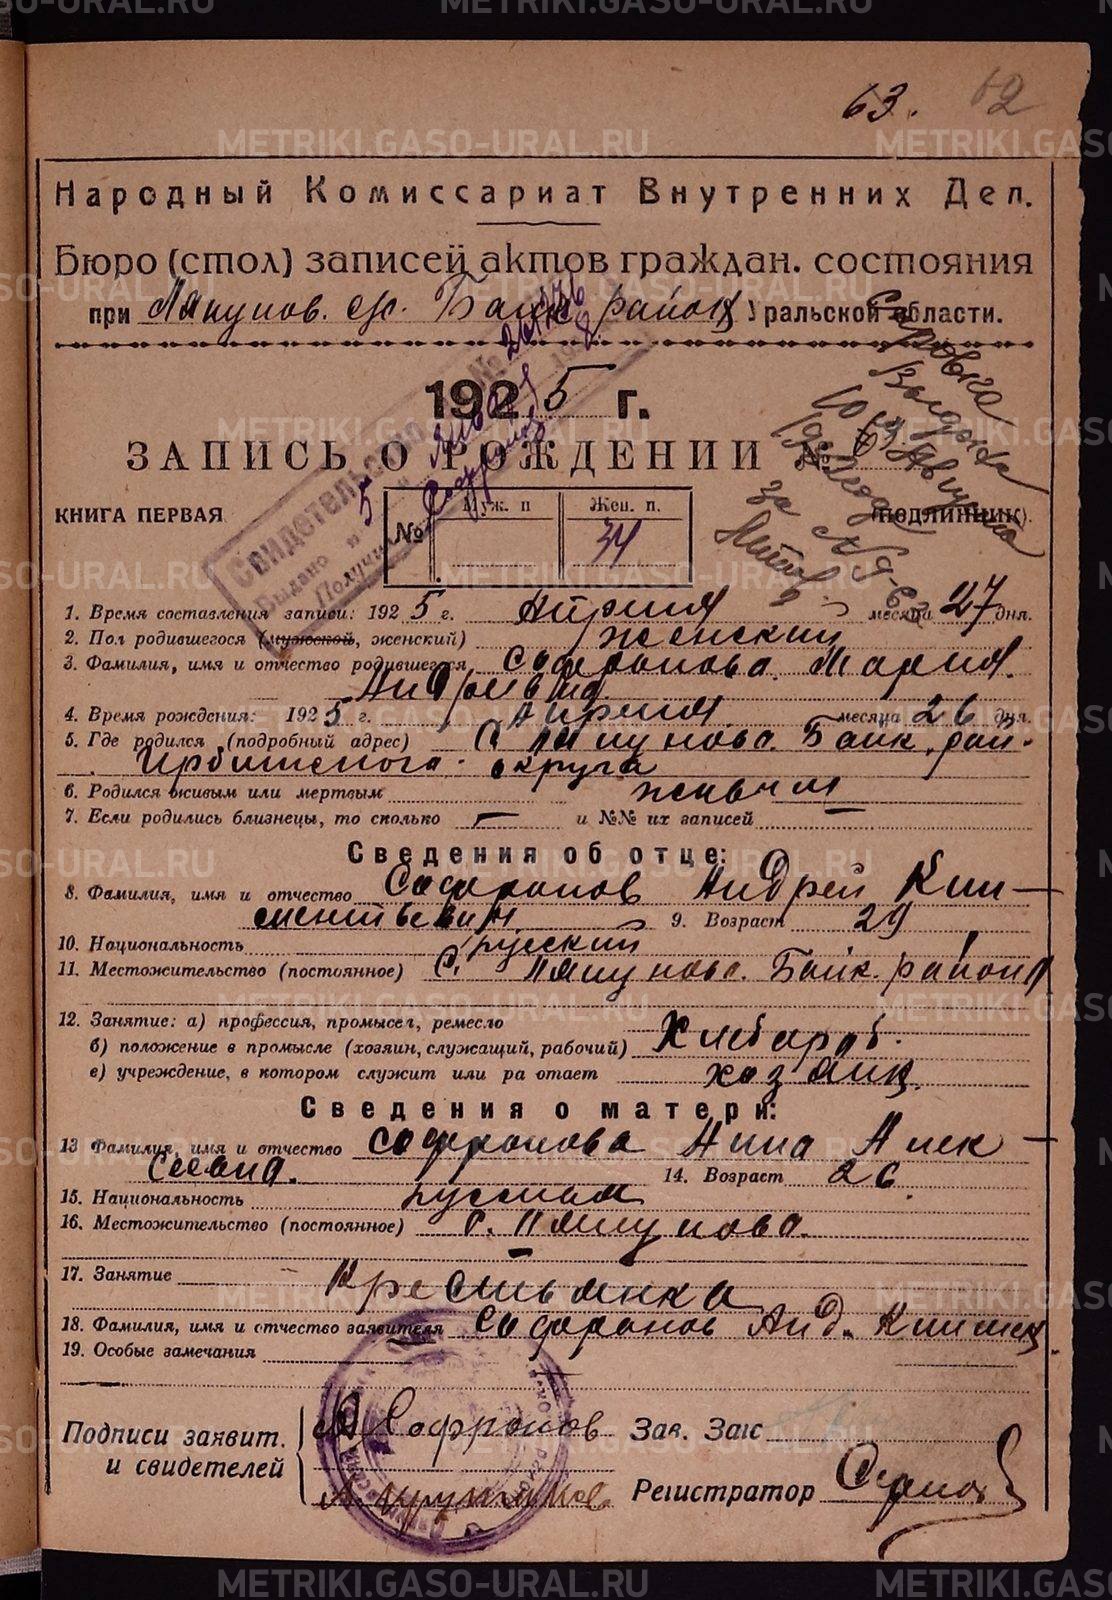 63. 62
Народный Комиссариат Внутренних Дел.
Бюро (стол) записей актов граждан. состояния
при Ляпунов. с/с. Байк. район Уральской области.
1925 г.
ЗАПИСЬ О РОЖДЕНИИ № 63
Справка
Выдана
10го Августа
за № 9-62
Свидетельство №
Выдано " 5 " 192 г.
Получил
КНИГА ПЕРВАЯ
(подлинник).
№ Муж. п Жен. п.
34
1. Время составления записи: 1925 г. Апреля месяца 27 дня.
2. Пол родившегося (мужской, женский) женский
3. Фамилия, имя и отчество родившегося Софронова. Мария.
Андреевна.
4. Время рождения: 1925 г. Апреля. месяца 26 дня.
5. Где родился (подробный адрес) С. Ляпуново. Байк. рай.
Ирбитского округа
6. Родился живым или мертвым живым
7. Если родились близнецы, то сколько — и №№ их записей
Сведения об отце:
8. Фамилия, имя и отчество Софронов Андрей Кли-
ментьевич 9. Возраст 29
10. Национальность русский
11. Местожительство (постоянное) С. Ляпуново. Байк. района
12. Занятие: а) профессия, промысел, ремесло
б) положение в промысле (хозяин, служащий, рабочий) Хлебороб.
в) учреждение, в котором служит или ра отает хозяин.
Сведения о матери:
13 Фамилия, имя и отчество Софронова Анна Алек-
сеевна. 14. Возраст 26.
15. Национальность русская
16. Местожительство (постоянное) с. Ляпуново.
17. Занятие
Крестьянка
18. Фамилия, имя и отчество заявителя Софронов Анд. Климен.
19. Особые замечания
Подписи заявит.
и свидетелей
А Софронов
Зав. Загс
Регистратор
METRIKI.GASO-URAL.RU